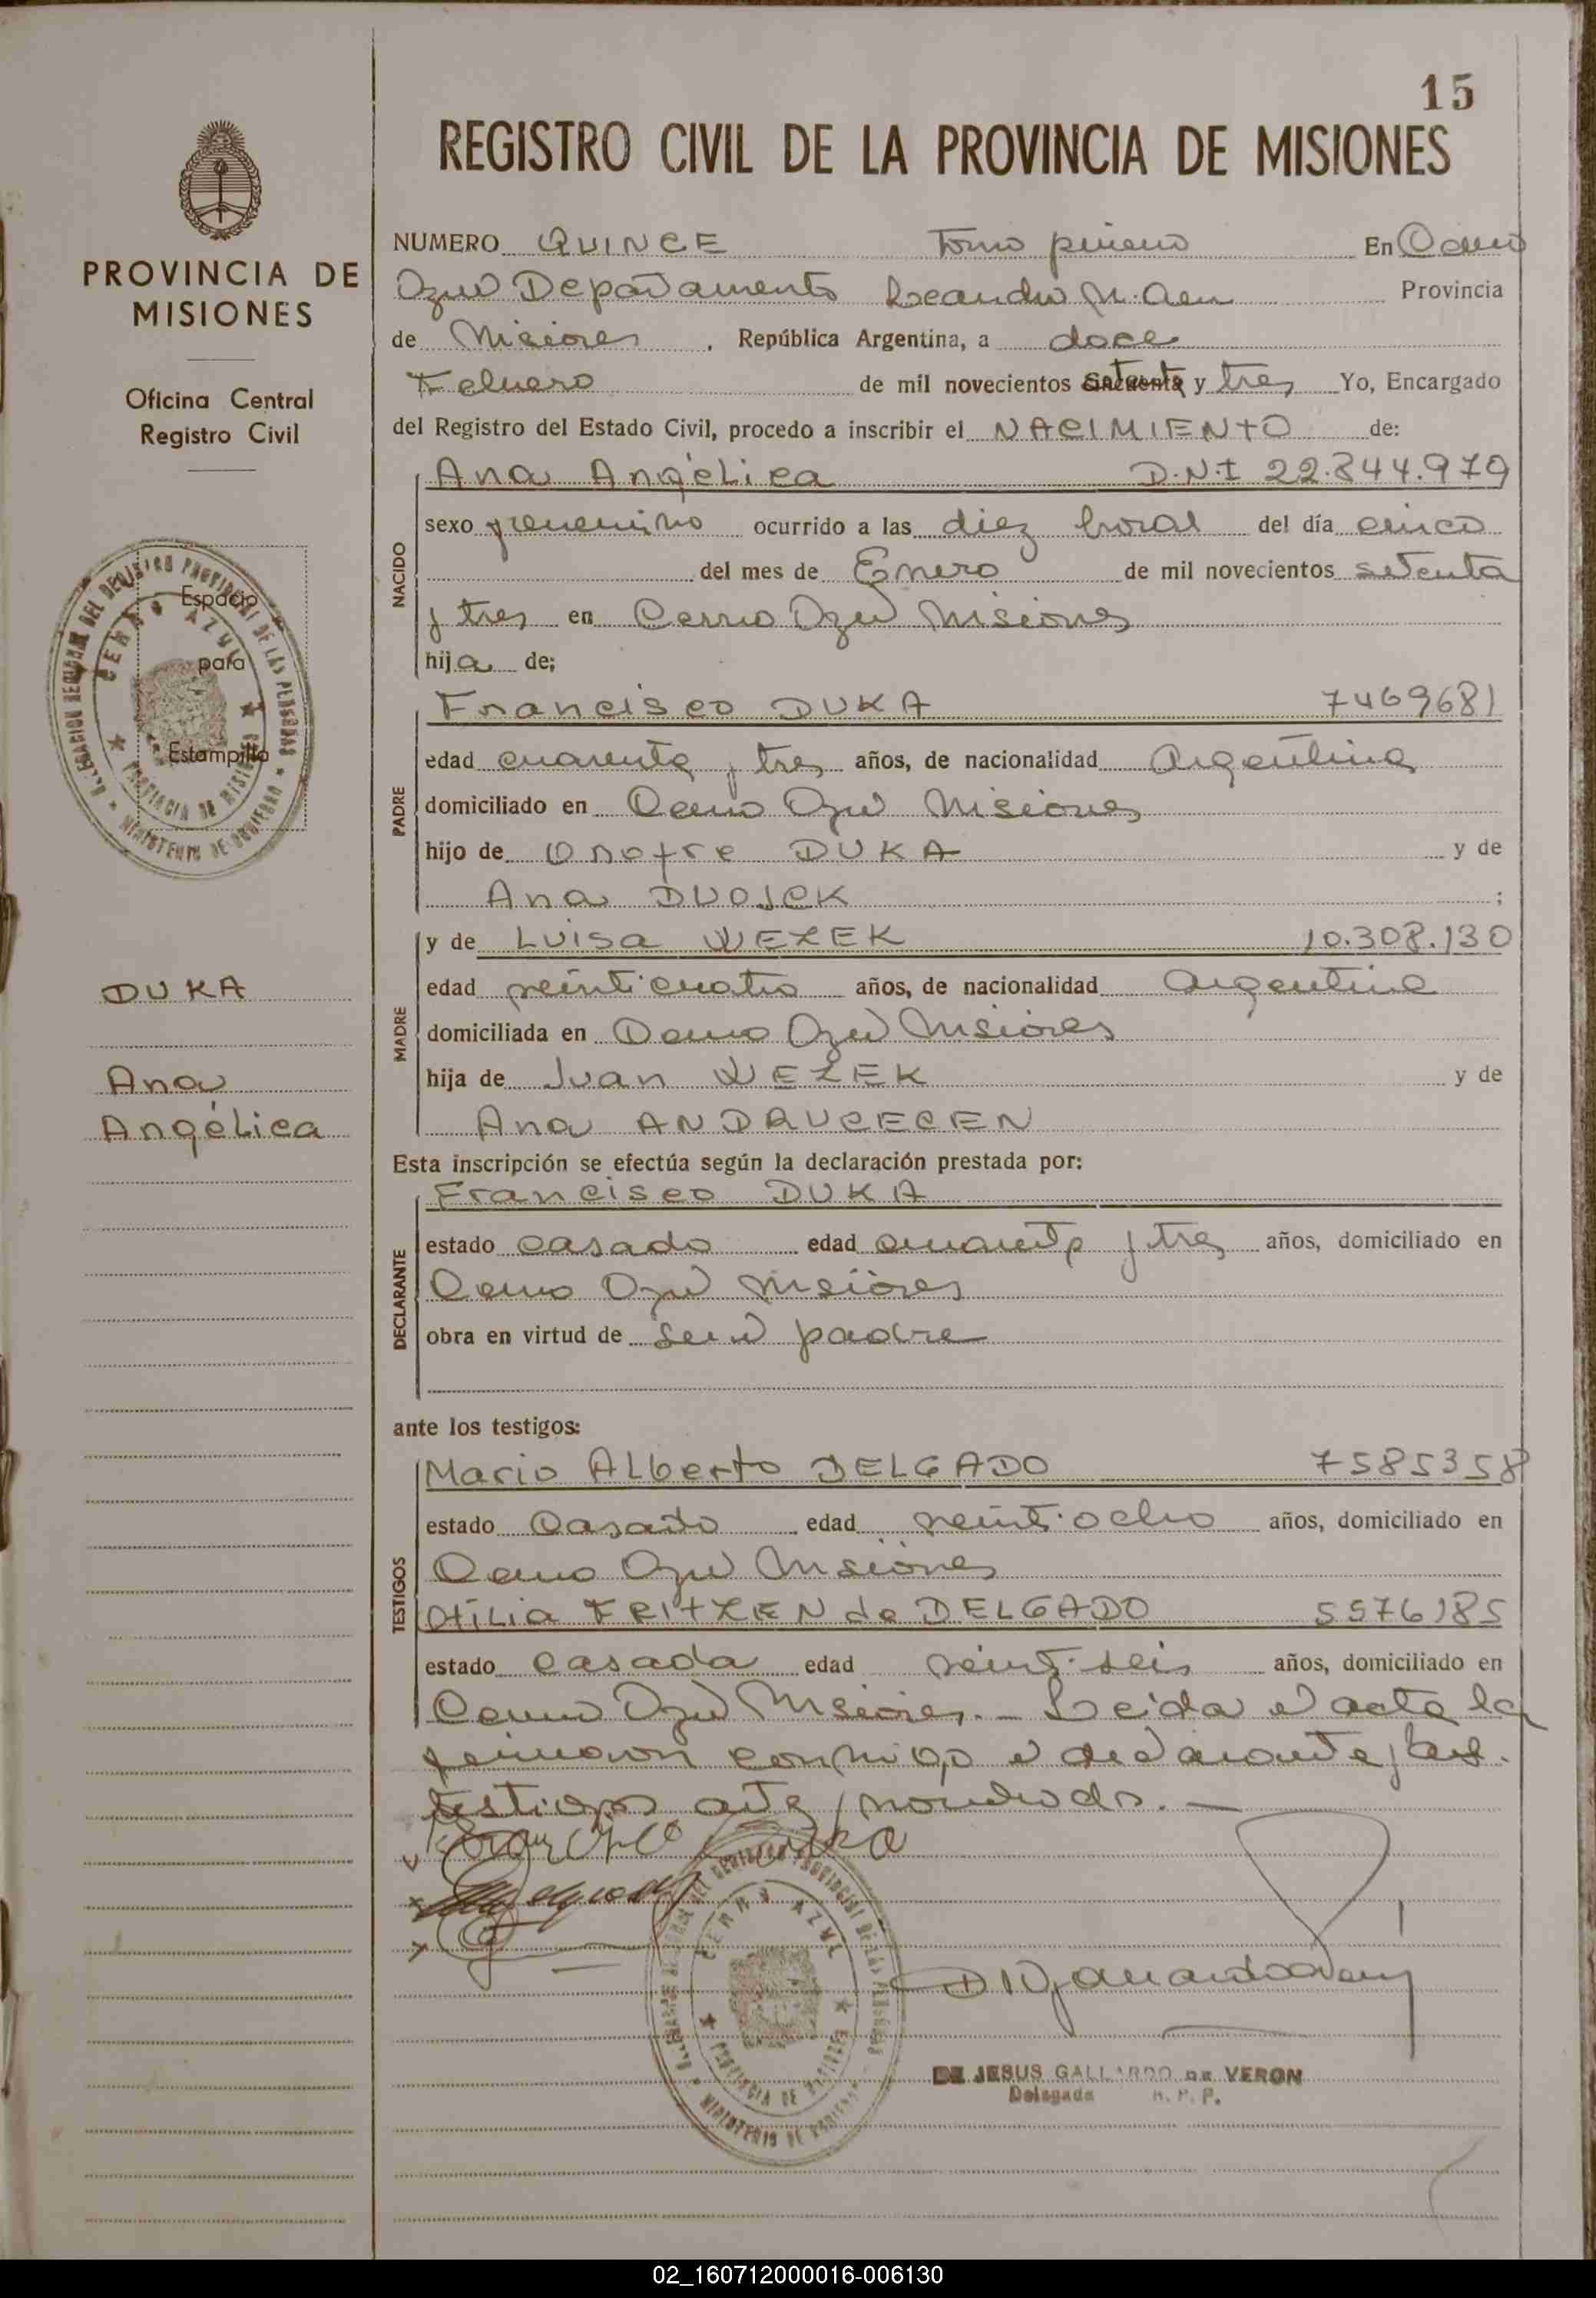 15
REGISTRO CIVIL DE LA PROVINCIA DE MISIONES
PROVINCIA DE
MISIONES
Oficina Central
Registro Civil
Espacio
para
Estampilla
DUKA
Ana
Angélica
NUMERO QUINCE Tomo primero En Cerro
Azul Departamento Leandro N. Alem Provincia
de Misiones, República Argentina, a doce
Febrero de mil novecientos setenta y tres Yo, Encargado
del Registro del Estado Civil, procedo a inscribir el NACIMIENTO de:
NACIDO
Ana Angélica D.N.I 22.844.979
sexo femenino ocurrido a las diez horas del día cinco
del mes de Enero de mil novecientos setenta
y tres en Cerro Azul Misiones
hija de;
PADRE
Francisco DUKA 7469681
edad cuarenta y tres años, de nacionalidad Argentina
domiciliado en Cerro Azul Misiones
hijo de Onofre DUKA y de
Ana DUOJEK ;
MADRE
y de Luisa WEZEK 10.308.130
edad veinticuatro años, de nacionalidad Argentina
domiciliada en Cerro Azul Misiones
hija de Juan WEZEK y de
Ana ANDRUCECEN
Esta inscripción se efectúa según la declaración prestada por:
DECLARANTE
Francisco DUKA
estado casado edad cuarenta y tres años, domiciliado en
Cerro Azul Misiones
obra en virtud de ser el padre
ante los testigos:
TESTIGOS
Mario Alberto DELGADO 7585358
estado Casado edad veintiocho años, domiciliado en
Cerro Azul Misiones
Otilia FRITZEN de DELGADO 5576185
estado casada edad veintiseis años, domiciliado en
Cerro Azul Misiones. - Leida el acta la
firmaron conmigo el declarante y los
testigos ante nombrado. -
CERRO AZUL
PROVINCIA DE MISIONES
MINISTERIO DE GOBIERNO
DE JESUS GALLARDO DE VERON
Delegada R. P. P.
02_160712000016-006130